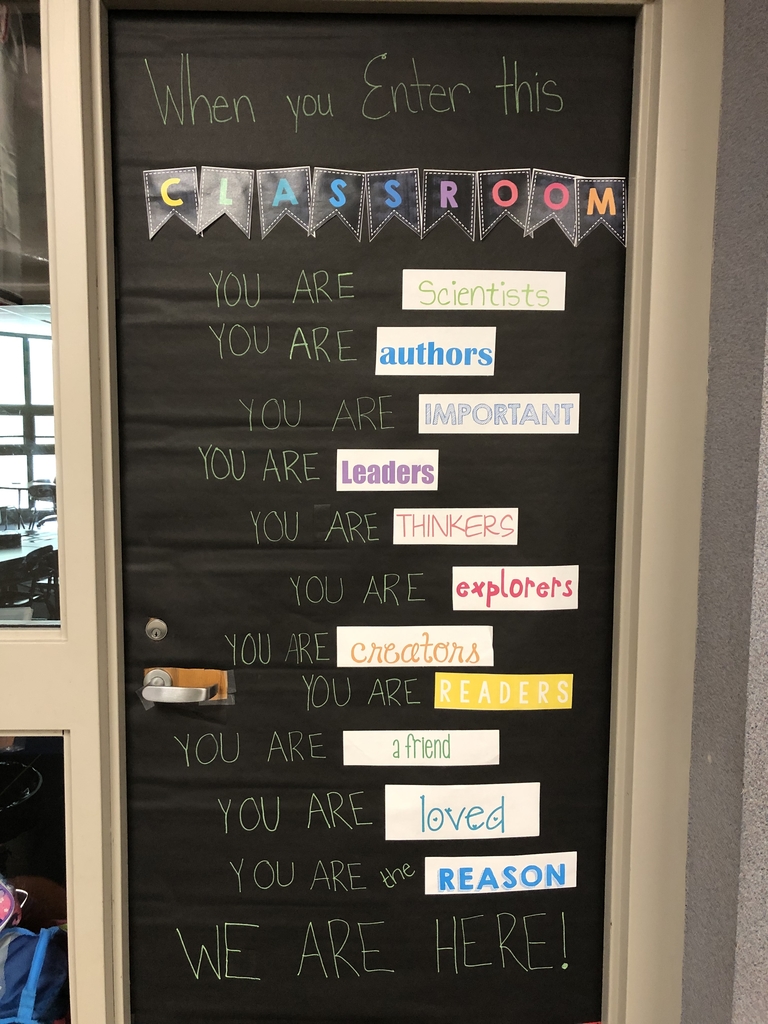 When you Enter this
CLASSROOM
YOU ARE Scientists
YOU ARE authors
YOU ARE IMPORTANT
YOU ARE Leaders
YOU ARE THINKERS
YOU ARE explorers
YOU ARE creators
YOU ARE READERS
YOU ARE a friend
YOU ARE loved
YOU ARE the REASON
WE ARE HERE!